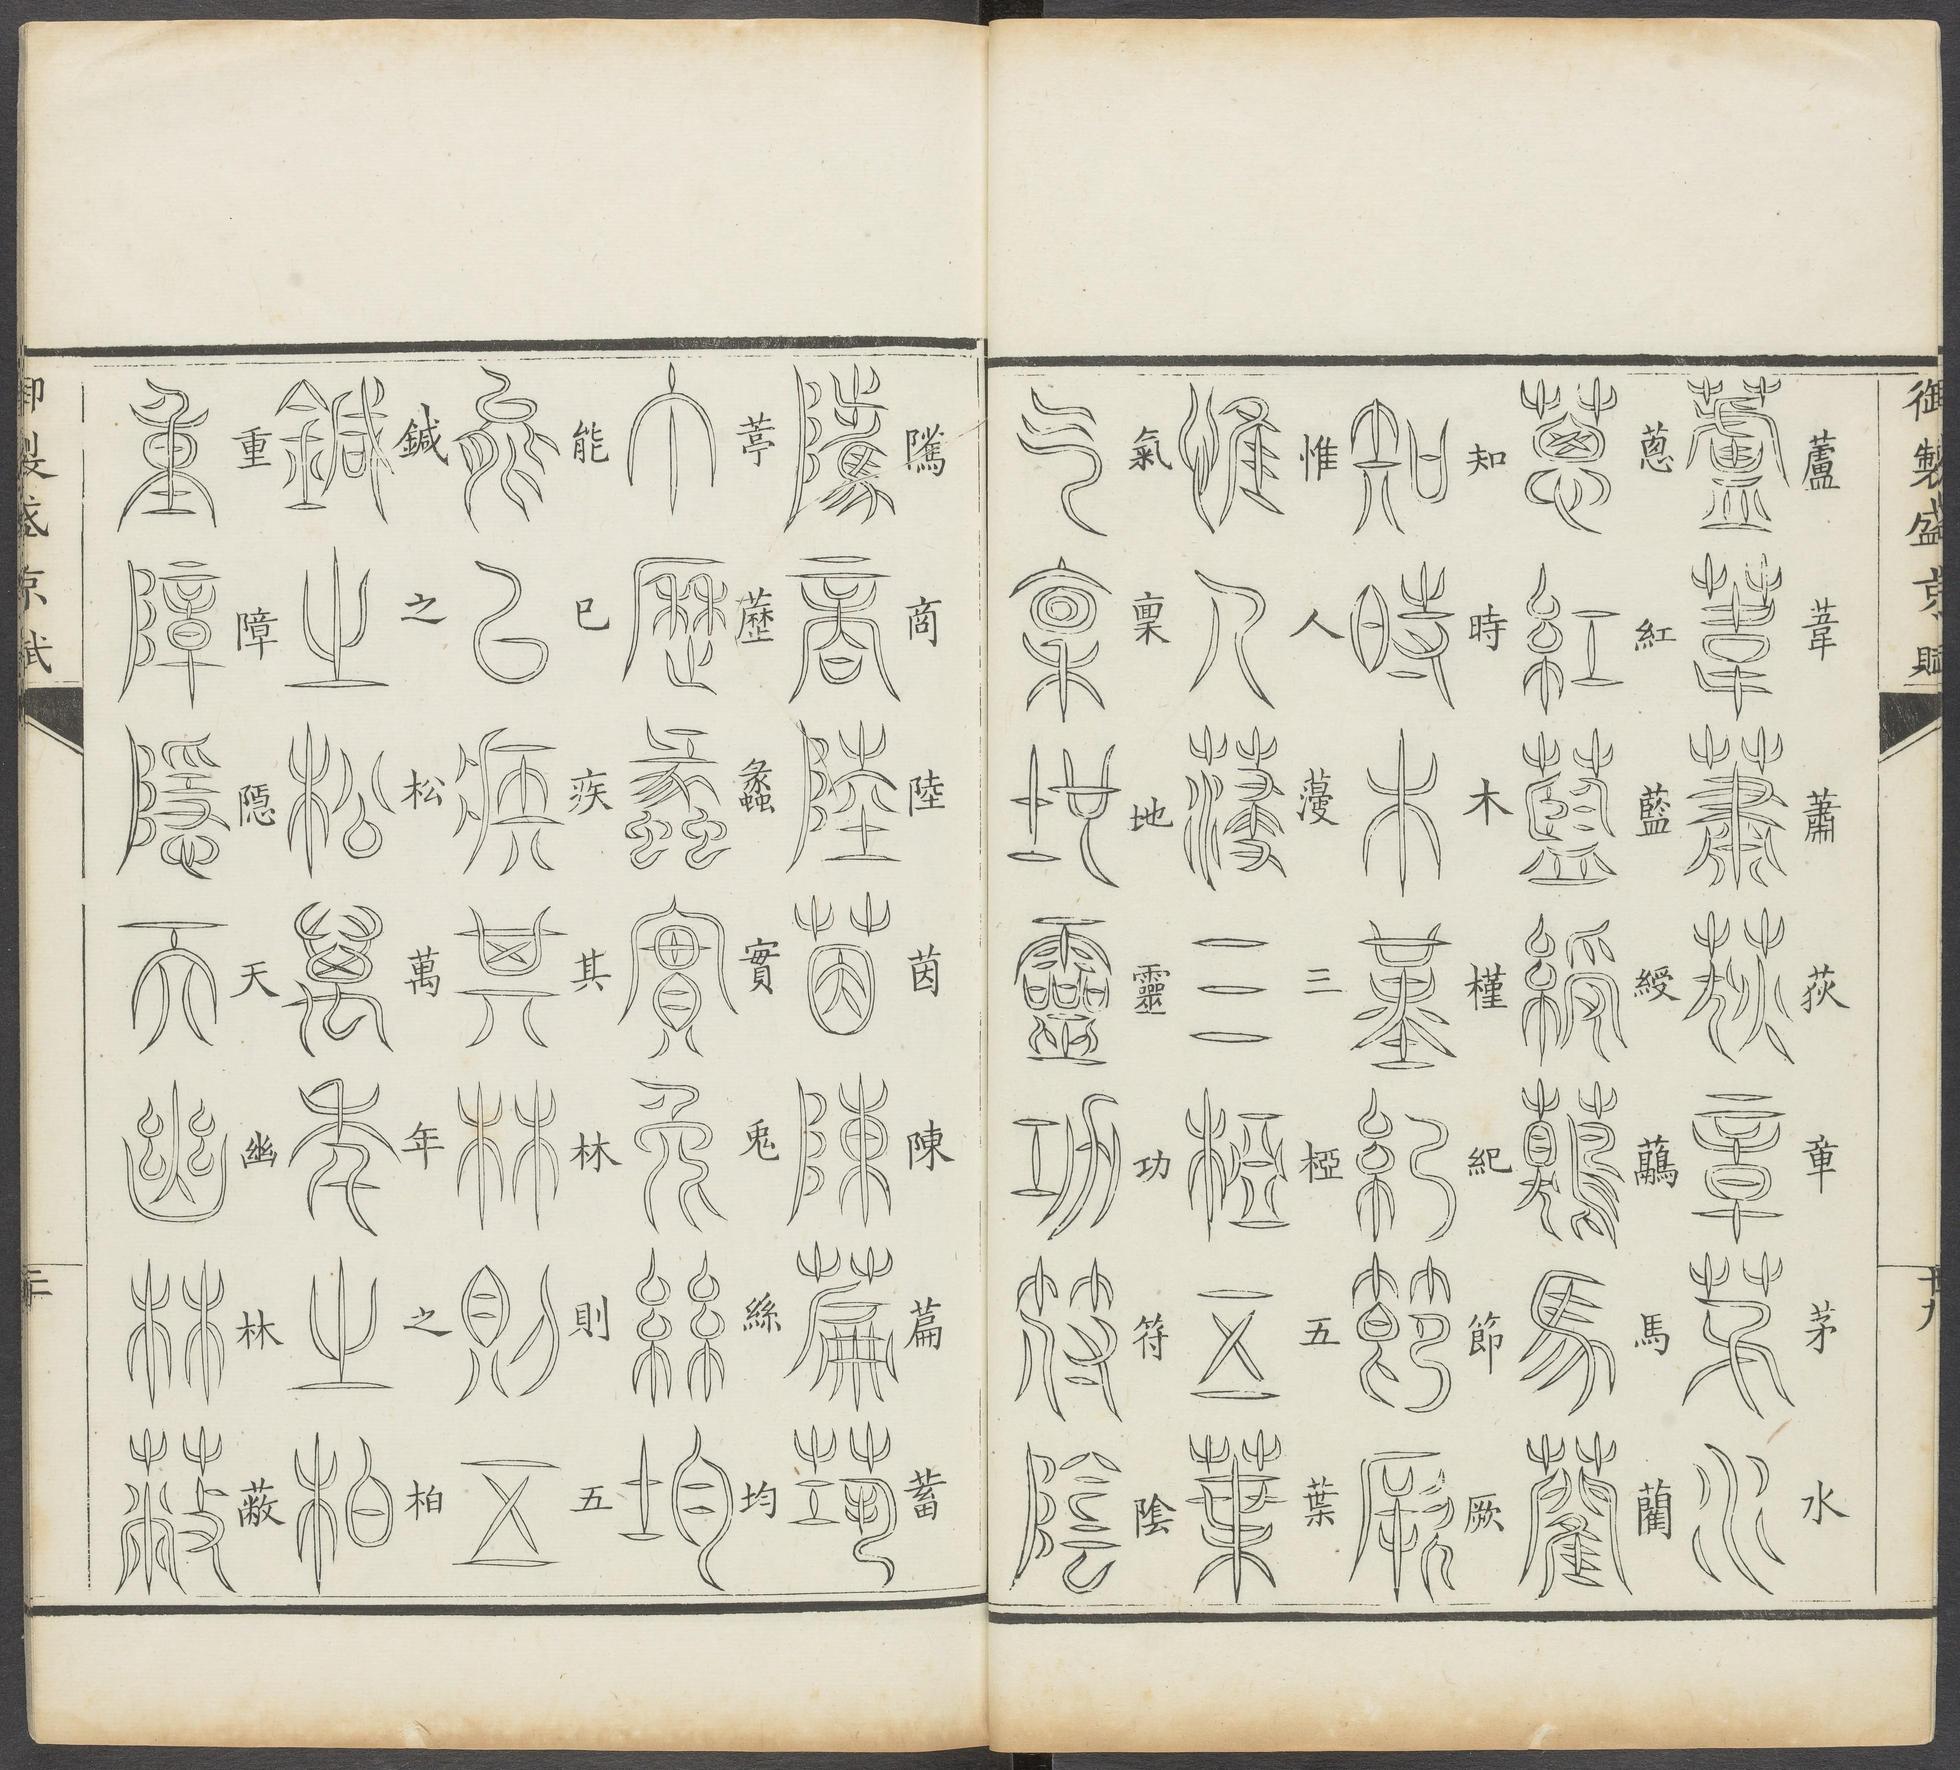 御製盛京賦
十九
蘆葦蕭荻章茅水
蔥紅藍綬虉馬藺
知時木槿紀節厥
惟人薓三椏五葉
氣稟地靈功符陰
隲商陸茵陳萹蓄
葶藶蠡實兎絲均
能已疾其林則五
鍼之松萬年之柏
重障隱天幽林蔽
御製盛京賦
二十